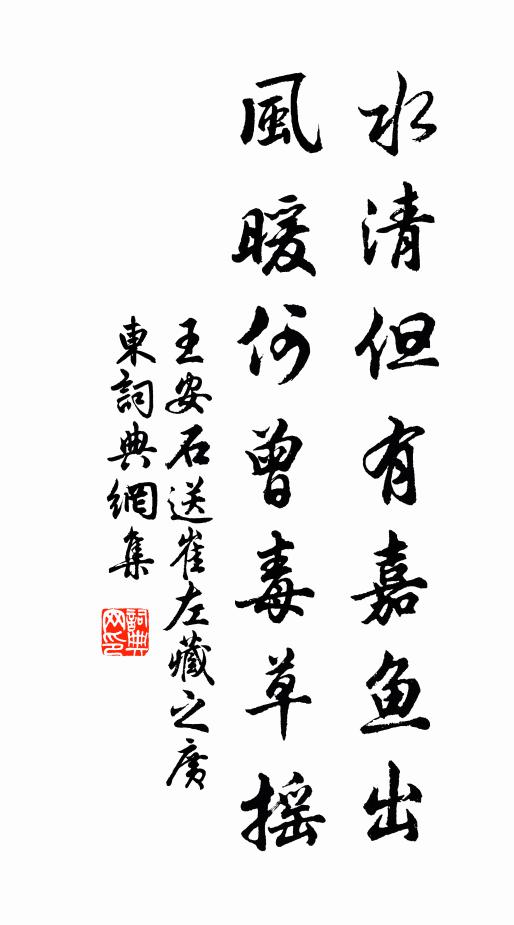 水清但有嘉鱼出
風暖何曾毒草摇
王安石送崔左藏之廣
東詞典網集
詞典
网印